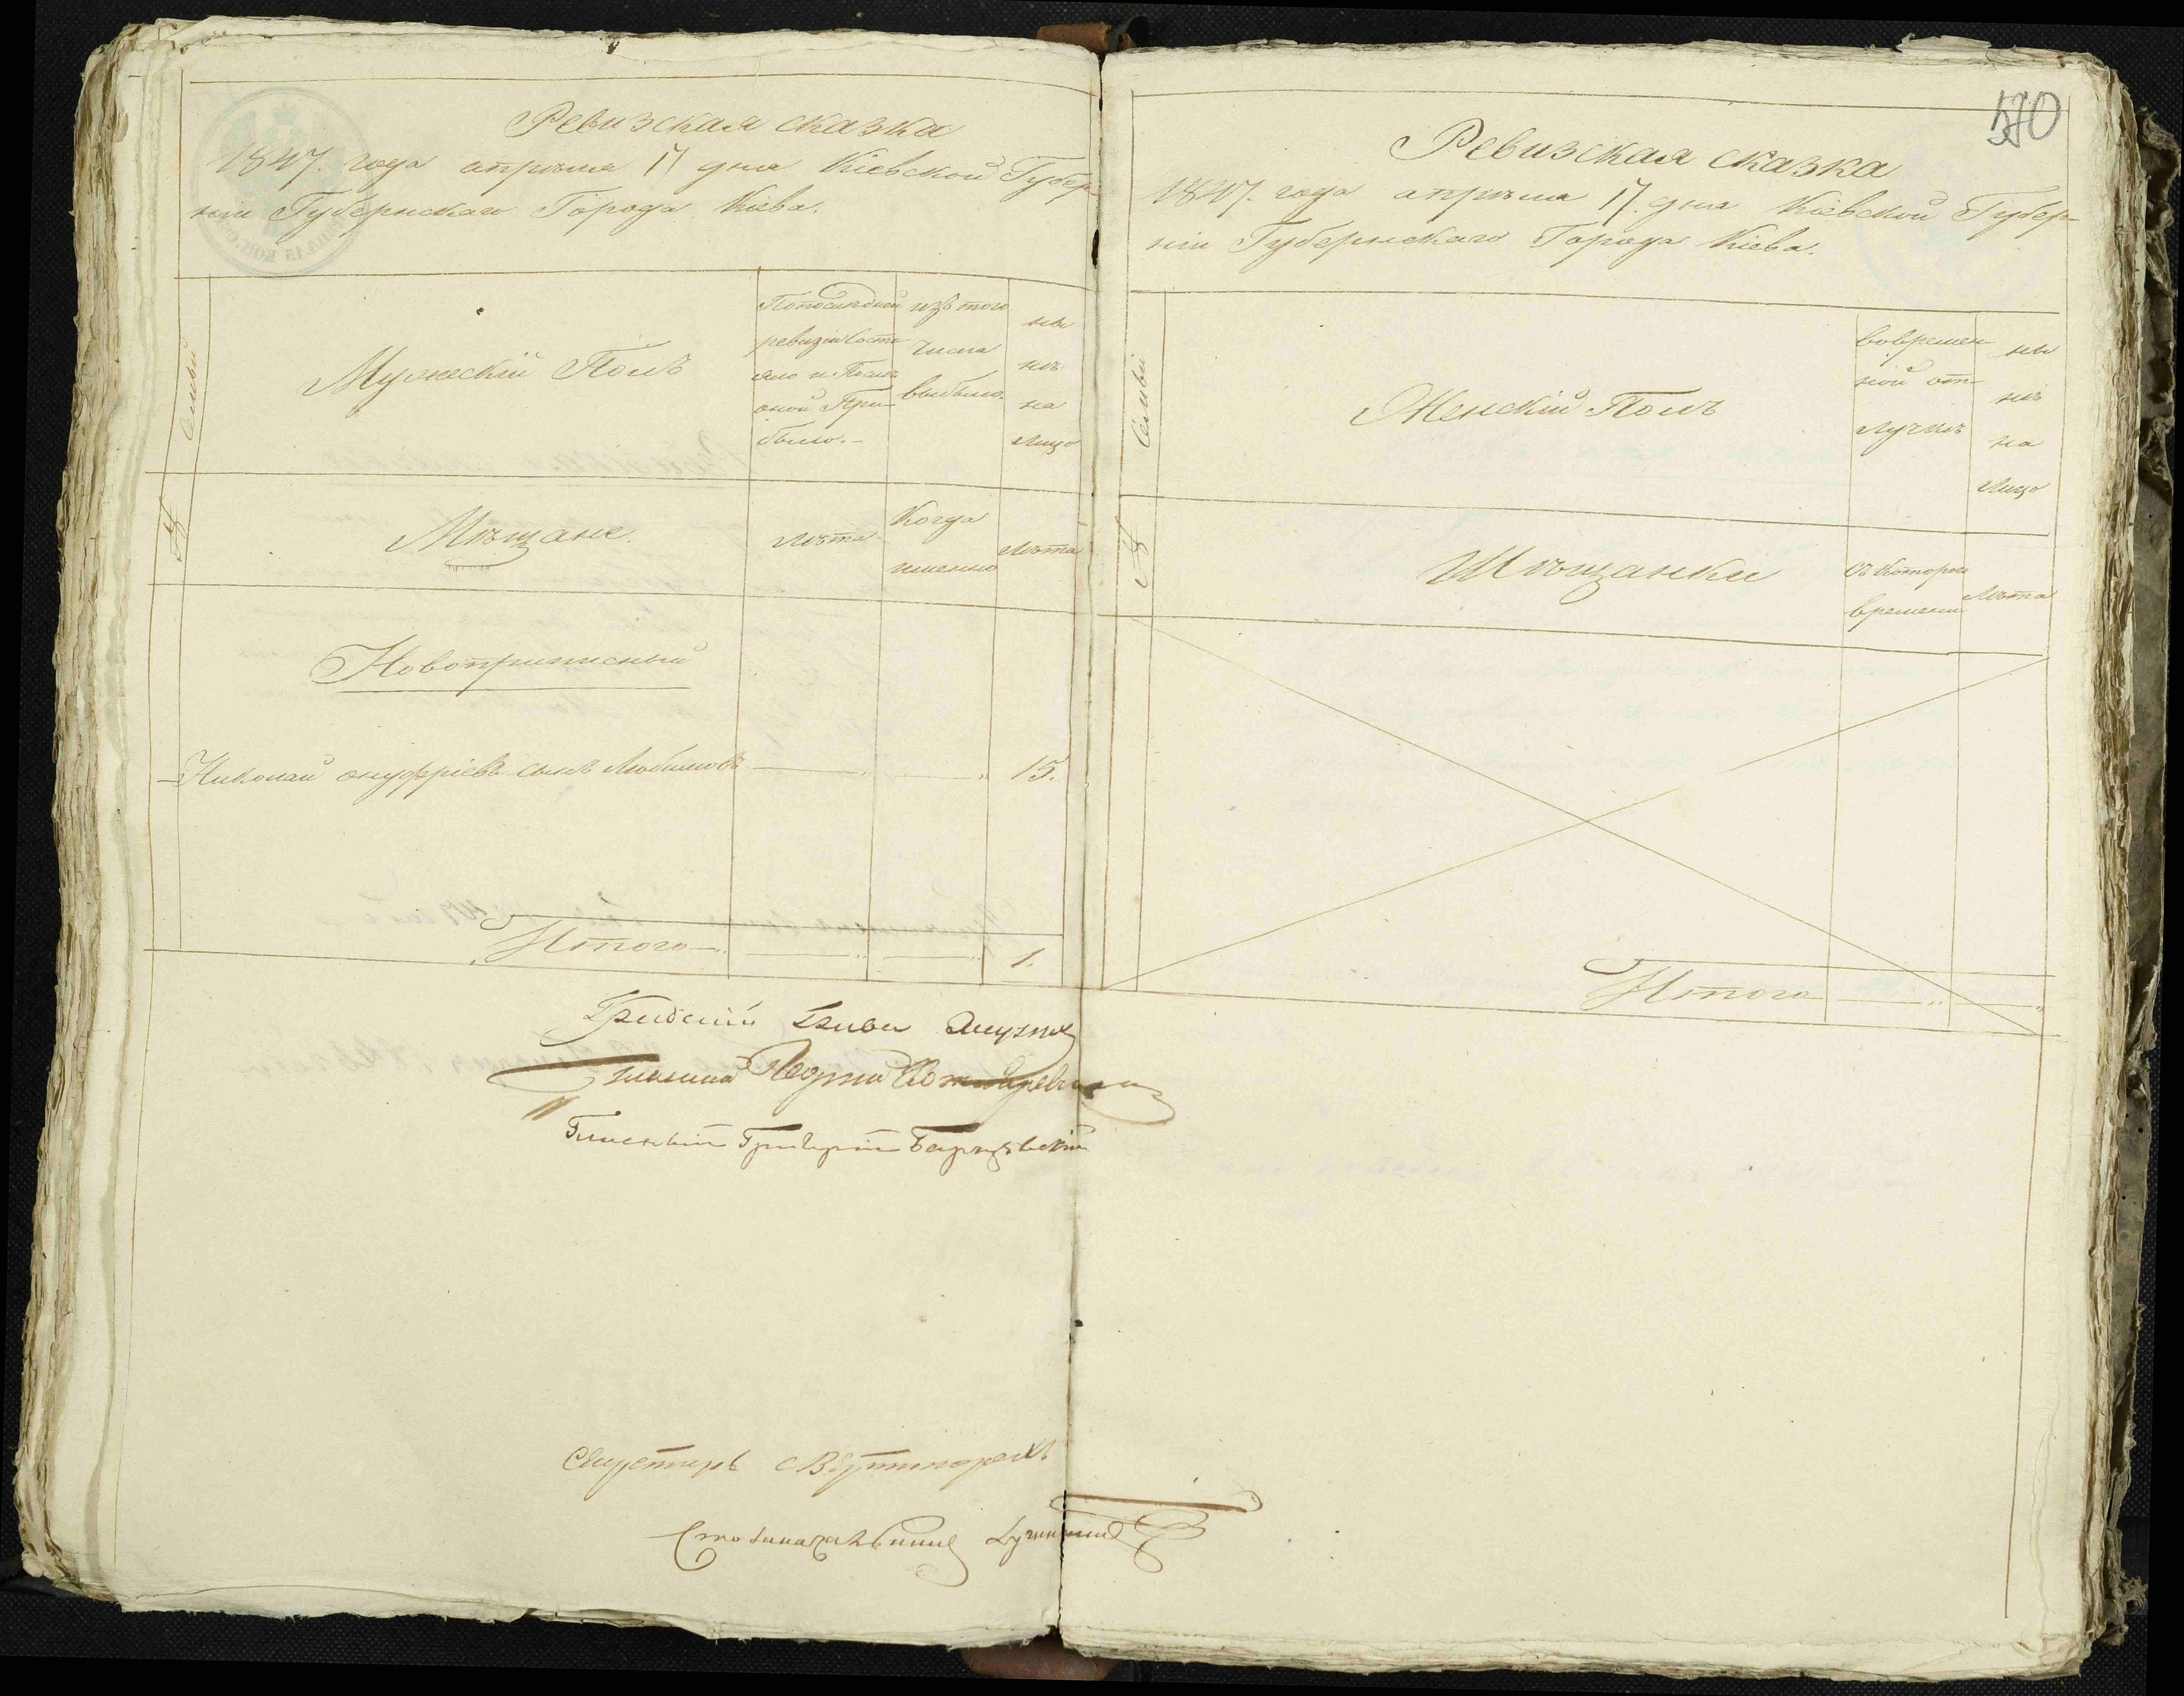 Ревизская сказка
1847. года апрѣля 17 дня Кіевской Губер-
ніи Губернскаго Города Кіева.
Семьи
№
Мужескій Полъ
Попослѣдней
ревизіи состо
яло и Послѣ
оной При
было.-
изъ того
числа
выбыло.
ны
нѣ
на
Лицо
Мѣщане.
Лѣта
Когда
именно
Лѣта
Новоприписный
Николай ануфріевъ сынъ Любимовъ — „ — „ 15.
Итого — „ — „ — „ 1.
Гласный Григорій
Секретарь
570
Ревизская сказка
1847. года апрѣля 17. дня Кіевской Губер-
ніи Губернскаго Города Кіева.
Семьи
№
Женскій Полъ
вовремен
ной от-
лучкѣ
ны
нѣ
на
Лицо
Мѣщанки
Съ Котораго
времени
Лѣта
Итого — „ — „